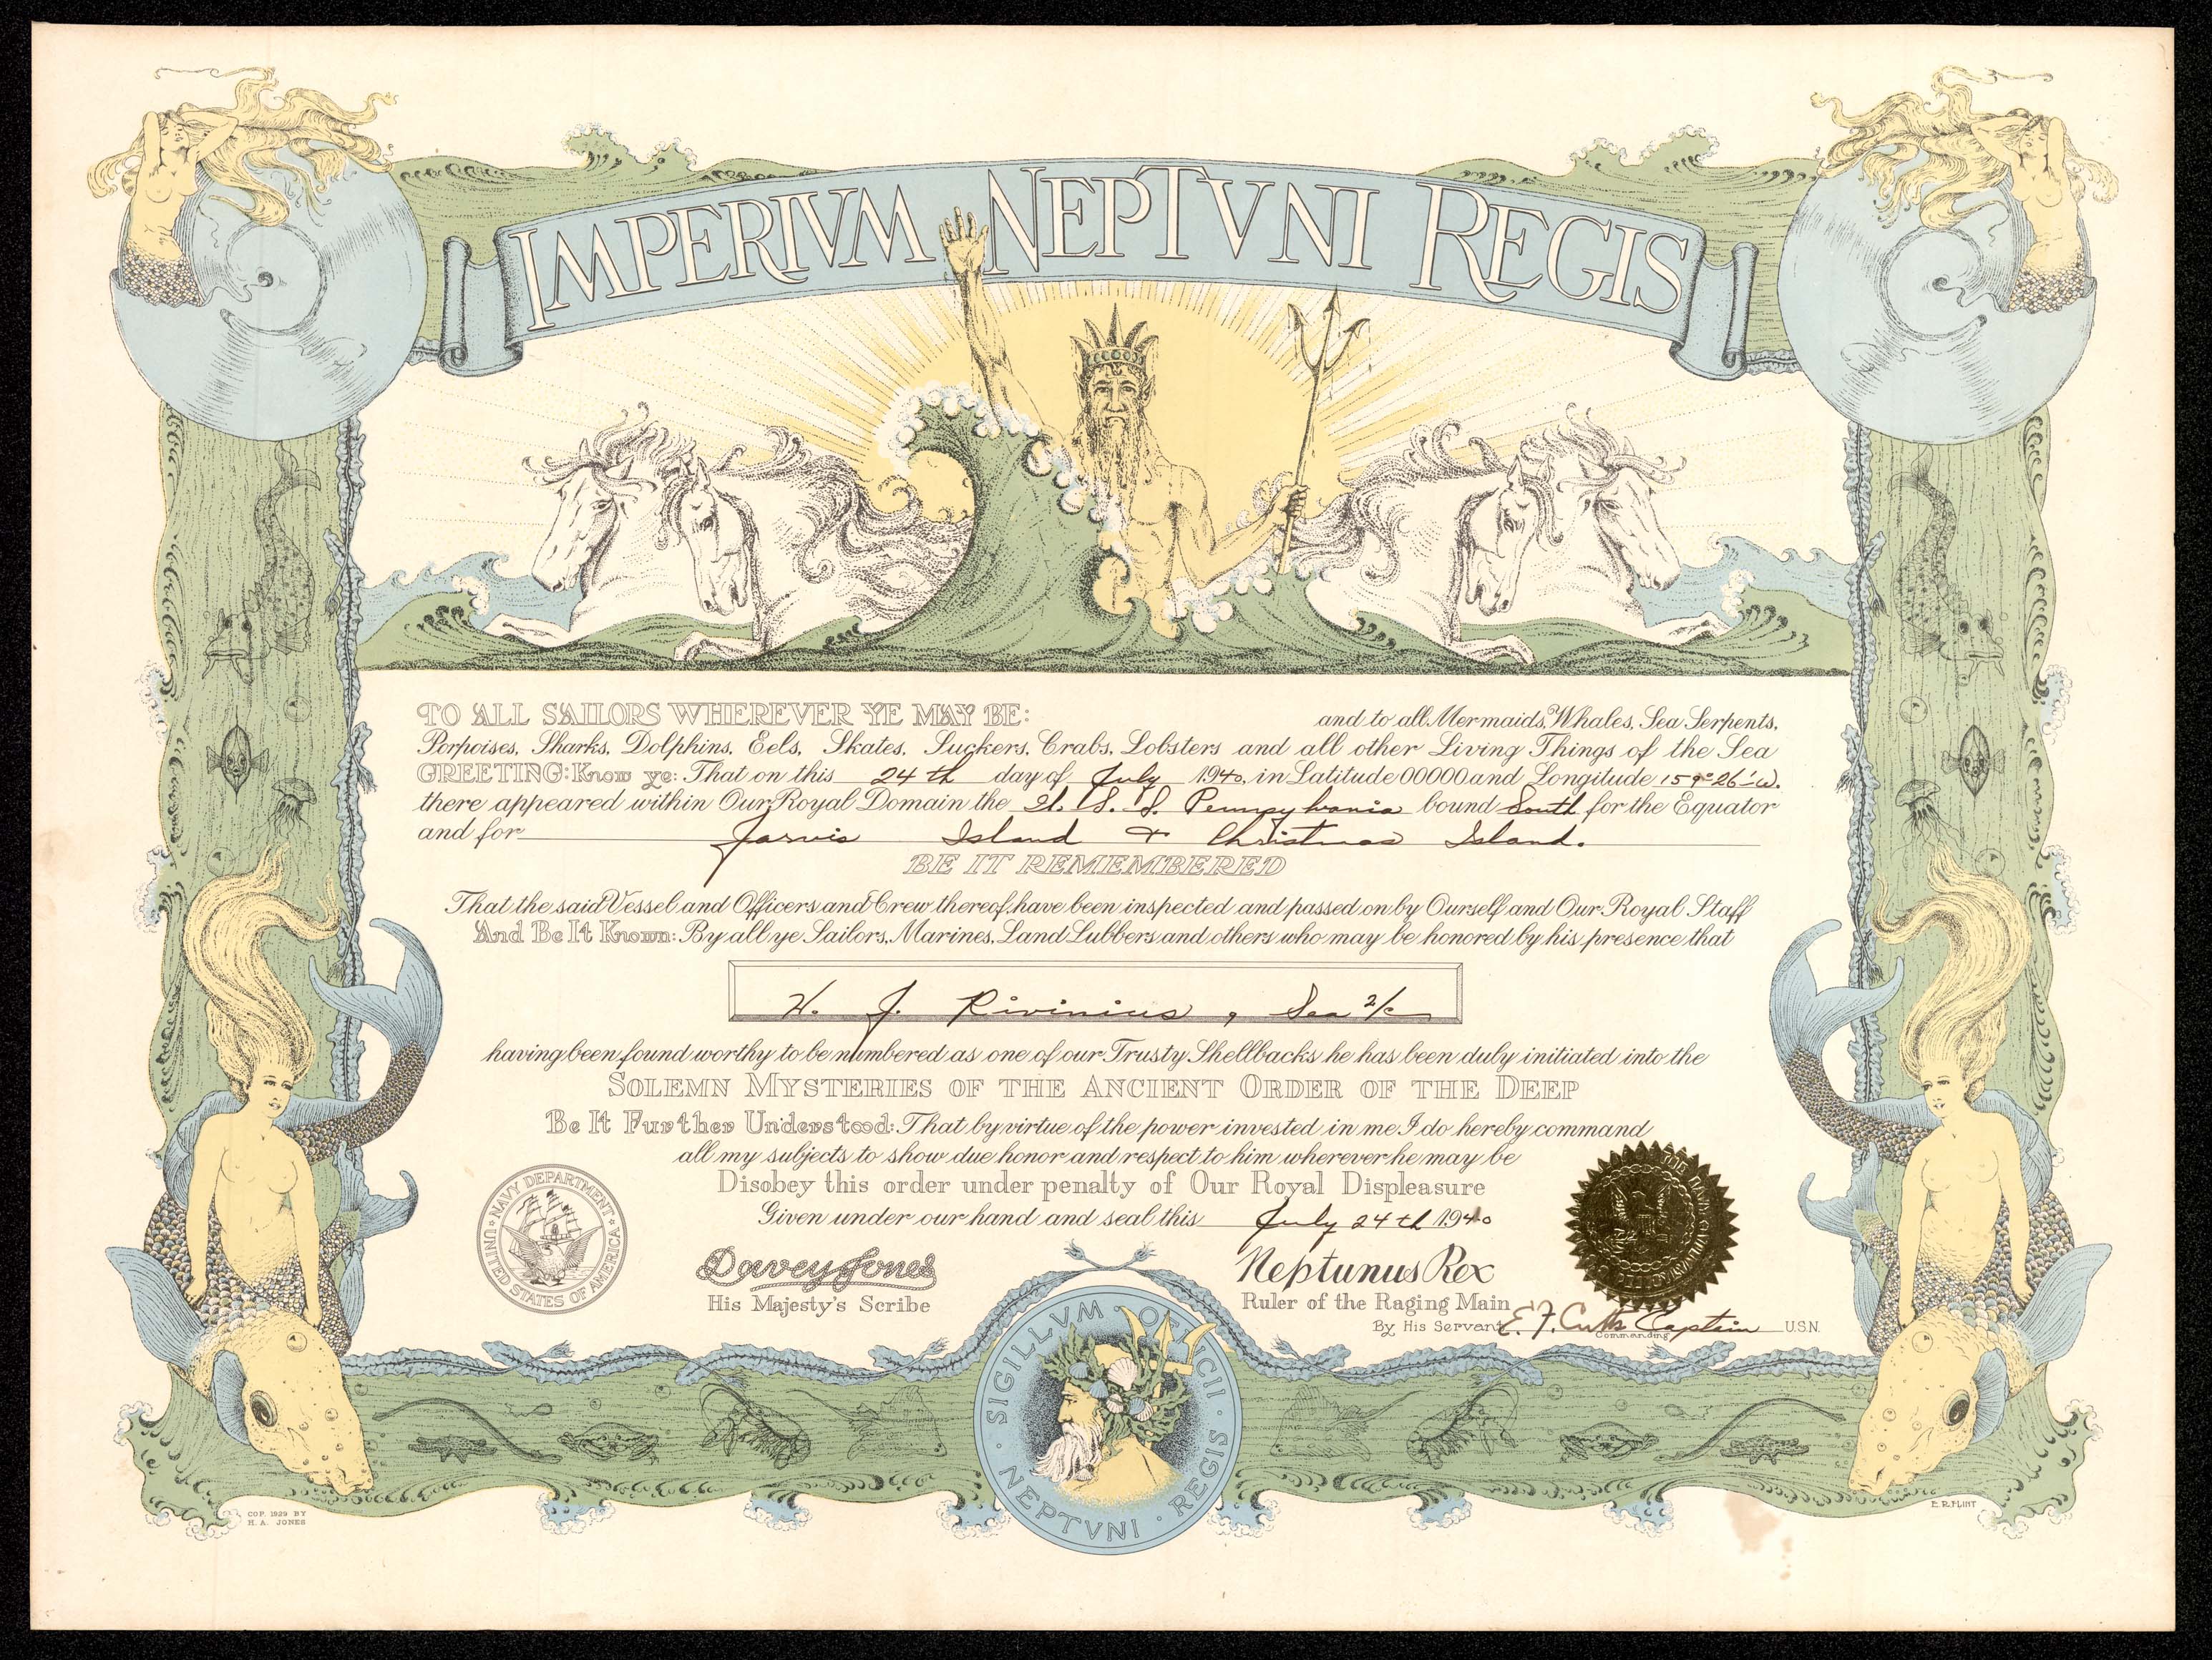 IMPERIVM NEPTVNI REGIS
TO ALL SAILORS WHEREVER YE MAY BE: and to all Mermaids, Whales, Sea Serpents,
Porpoises, Sharks, Dolphins, Eels, Skates, Suckers, Crabs, Lobsters and all other Living Things of the Sea
GREETING: Know ye: That on this 24th day of July 1940, in Latitude 00000 and Longitude 159°-26'-W.
there appeared within Our Royal Domain the U.S.S. Pennsylvania bound South for the Equator
and for Jarvis Island & Christmas Island.
BE IT REMEMBERED
That the said Vessel and Officers and Crew thereof, have been inspected and passed on by Ourself and Our Royal Staff
And Be It Known: By all ye Sailors, Marines, Land Lubbers and others who may be honored by his presence that
J. Rivinius, Sea 2/c
having been found worthy to be numbered as one of our Trusty Shellbacks he has been duly initiated into the
SOLEMN MYSTERIES OF THE ANCIENT ORDER OF THE DEEP
Be It Further Understood: That by virtue of the power invested in me I do hereby command
all my subjects to show due honor and respect to him wherever he may be
Disobey this order under penalty of Our Royal Displeasure
Given under our hand and seal this July 24th 1940
NAVY DEPARTMENT
UNITED STATES OF AMERICA
Davey Jones
His Majesty's Scribe
Neptunus Rex
Ruler of the Raging Main
By His Servant E. F. Cutts Captain U.S.N.
Commanding
SIGILLVM NEPTVNI REGIS
COP. 1929 BY
H. A. JONES
E. R. FLINT